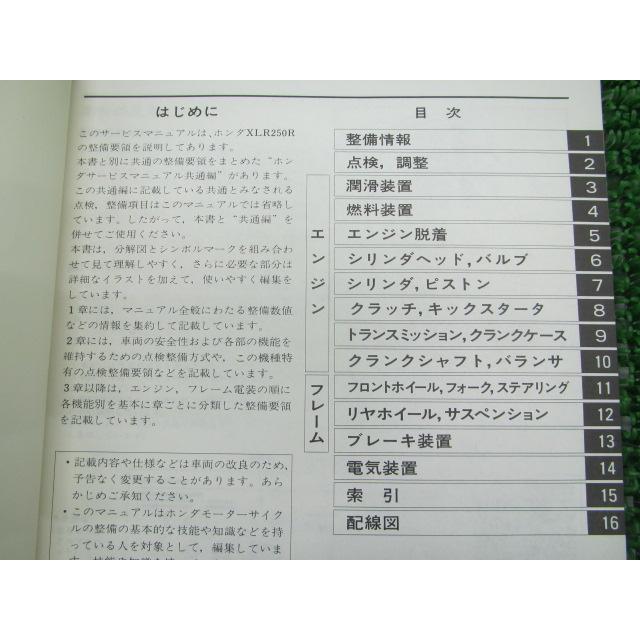 はじめに
このサービスマニュアルは、ホンダXLR250R
の整備要領を説明してあります。
本書と別に共通の整備要領をまとめた“ホン
ダサービスマニュアル共通編”があります。
この共通編に記載している共通とみなされる
点検，整備項目はこのマニュアルでは省略し
ています。したがって，本書と“共通編”を
併せてご使用ください。
本書は，分解図とシンボルマークを組み合わ
せて見て理解しやすく，さらに必要な部分は
詳細なイラストを加えて，使いやすく編集を
しています。
1章には，マニュアル全般にわたる整備数値
などの情報を集約して記載しています。
2章には，車両の安全性および各部の機能を
維持するための点検整備方式や，この機種特
有の点検整備要領などを記載しています。
3章以降は，エンジン，フレーム電装の順に
各機能別を基本に章ごとに分類した整備要領
を記載しています。
・記載内容や仕様などは車両の改良のため，
予告なく変更することがあります。あら
かじめご承知ください。
・このマニュアルはホンダモーターサイク
ルの整備の基本的な技能や知識などを持
っている人を対象として，編集していま
目 次
整備情報 1
点検，調整 2
エンジン
潤滑装置 3
燃料装置 4
エンジン脱着 5
シリンダヘッド，バルブ 6
シリンダ，ピストン 7
クラッチ，キックスタータ 8
トランスミッション，クランクケース 9
クランクシャフト，バランサ 10
フレーム
フロントホイール，フォーク，ステアリング 11
リヤホイール，サスペンション 12
ブレーキ装置 13
電気装置 14
索 引 15
配線図 16